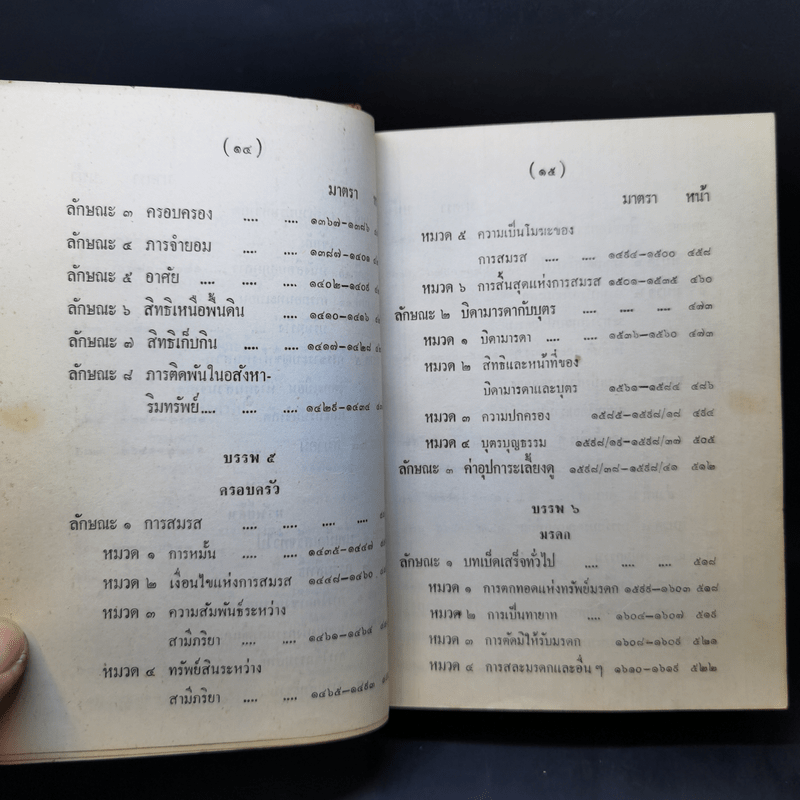 (๑๔)
มาตรา
ลักษณะ ๓ ครอบครอง .... .... ๑๓๖๗-๑๓๘๖
ลักษณะ ๔ ภารจำยอม .... .... ๑๓๘๗-๑๔๐๑
ลักษณะ ๕ อาศัย .... .... ๑๔๐๒-๑๔๐๙
ลักษณะ ๖ สิทธิเหนือพื้นดิน .... ๑๔๑๐-๑๔๑๖
ลักษณะ ๗ สิทธิเก็บกิน .... .... ๑๔๑๗-๑๔๒๘
ลักษณะ ๘ ภารติดพันในอสังหา-
ริมทรัพย์.... .... .... ๑๔๒๙-๑๔๓๔
บรรพ ๕
ครอบครัว
ลักษณะ ๑ การสมรส .... .... .... ....
หมวด ๑ การหมั้น .... .... ๑๔๓๕-๑๔๔๗
หมวด ๒ เงื่อนไขแห่งการสมรส ๑๔๔๘-๑๔๖๐
หมวด ๓ ความสัมพันธ์ระหว่าง
สามีภริยา .... .... ๑๔๖๑-๑๔๖๔
หมวด ๔ ทรัพย์สินระหว่าง
สามีภริยา .... .... ๑๔๖๕-๑๔๙๓
(๑๕)
มาตรา หน้า
หมวด ๕ ความเป็นโมฆะของ
การสมรส .... .... ๑๔๙๔-๑๕๐๐ ๔๕๘
หมวด ๖ การสิ้นสุดแห่งการสมรส ๑๕๐๑-๑๕๓๕ ๔๖๐
ลักษณะ ๒ บิดามารดากับบุตร .... .... .... ๔๗๓
หมวด ๑ บิดามารดา .... .... ๑๕๓๖-๑๕๖๐ ๔๗๓
หมวด ๒ สิทธิและหน้าที่ของ
บิดามารดาและบุตร ๑๕๖๑-๑๕๘๔ ๔๘๖
หมวด ๓ ความปกครอง ๑๕๘๕-๑๕๙๘/๑๘ ๔๙๔
หมวด ๔ บุตรบุญธรรม ๑๕๙๘/๑๙-๑๕๙๘/๓๗ ๕๐๕
ลักษณะ ๓ ค่าอุปการะเลี้ยงดู ๑๕๙๘/๓๘-๑๕๙๘/๔๑ ๕๑๒
บรรพ ๖
มรดก
ลักษณะ ๑ บทเบ็ดเสร็จทั่วไป .... .... .... ๕๑๘
หมวด ๑ การตกทอดแห่งทรัพย์มรดก ๑๕๙๙-๑๖๐๓ ๕๑๘
หมวด ๒ การเป็นทายาท .... ๑๖๐๔-๑๖๐๗ ๕๑๙
หมวด ๓ การตัดมิให้รับมรดก ๑๖๐๘-๑๖๐๙ ๕๒๑
หมวด ๔ การสละมรดกและอื่น ๆ ๑๖๑๐-๑๖๑๙ ๕๒๒